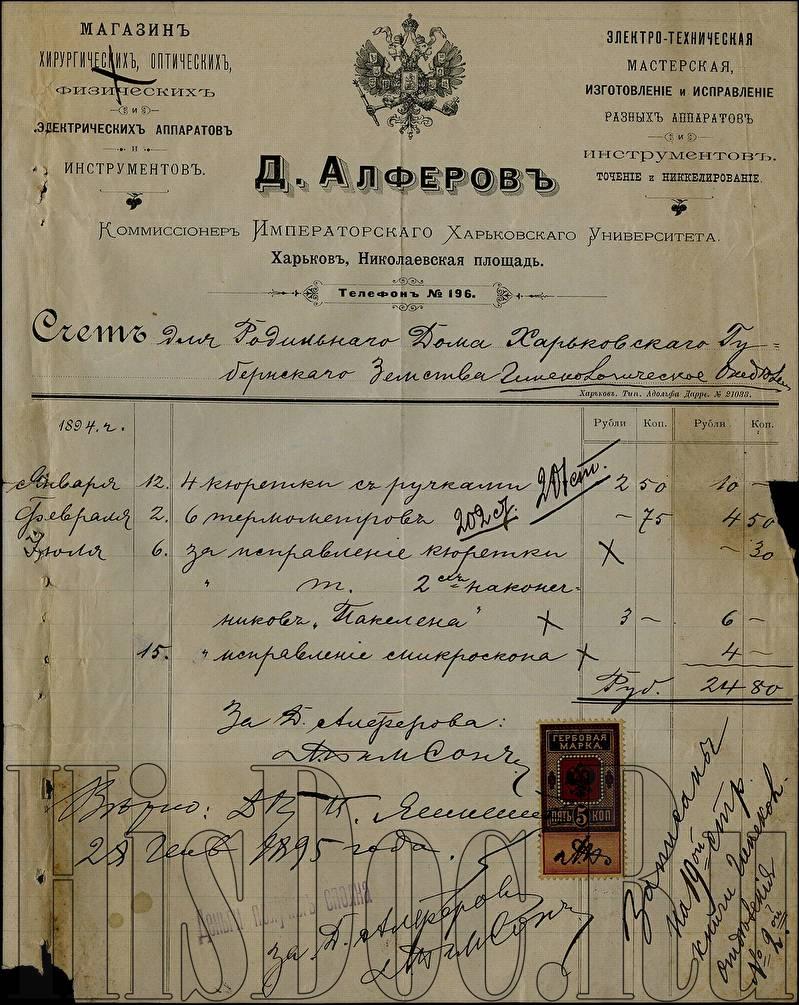 МАГАЗИНЪ
ХИРУРГИЧЕСКИХЪ, ОПТИЧЕСКИХЪ,
ФИЗИЧЕСКИХЪ
И
ЭЛЕКТРИЧЕСКИХЪ АППАРАТОВЪ
И
ИНСТРУМЕНТОВЪ.
ЭЛЕКТРО-ТЕХНИЧЕСКАЯ
МАСТЕРСКАЯ,
ИЗГОТОВЛЕНІЕ и ИСПРАВЛЕНІЕ
РАЗНЫХЪ АППАРАТОВЪ
И
ИНСТРУМЕНТОВЪ.
ТОЧЕНІЕ и НИККЕЛИРОВАНІЕ.
Д. АЛФЕРОВЪ
Коммиссіонеръ Императорскаго Харьковскаго Университета.
Харьковъ, Николаевская площадь.
Телефонъ № 196.
Счетъ для Родильнаго Дома Харьковскаго Гу-
бернскаго Земства Гинекологическое
Харьковъ. Тип. Адольфа Дарре. № 21033.
1894. г. Рубли Коп. Рубли Коп.
Января 12. 4 кюретки съ ручками 201 ст. 2 50 10 -
Февраля 2. 6 термометровъ 202 ст. - 75 4 50
Іюля 6. за исправленіе кюретки X - 30
" т. 2хъ наконеч-
никовъ „Пакелена" X 3 - 6 -
15. " исправленіе микроскопа X 4 -
Руб. 24 80
За Д. Алферова:
ГЕРБОВАЯ
МАРКА
ПЯТЬ 5 КОП
Вѣрно:
28 Генв 1895 года.
Деньги получилъ сполна
за Д. Алферова
Записаны
на 19ой стр.
книги Гинеколог.
отдѣленія
№ 2ой
HisDoc.Ru